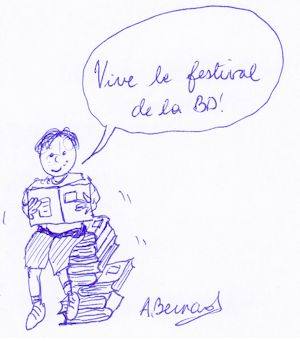 Vive le festival
de la BD!
A.Bernard